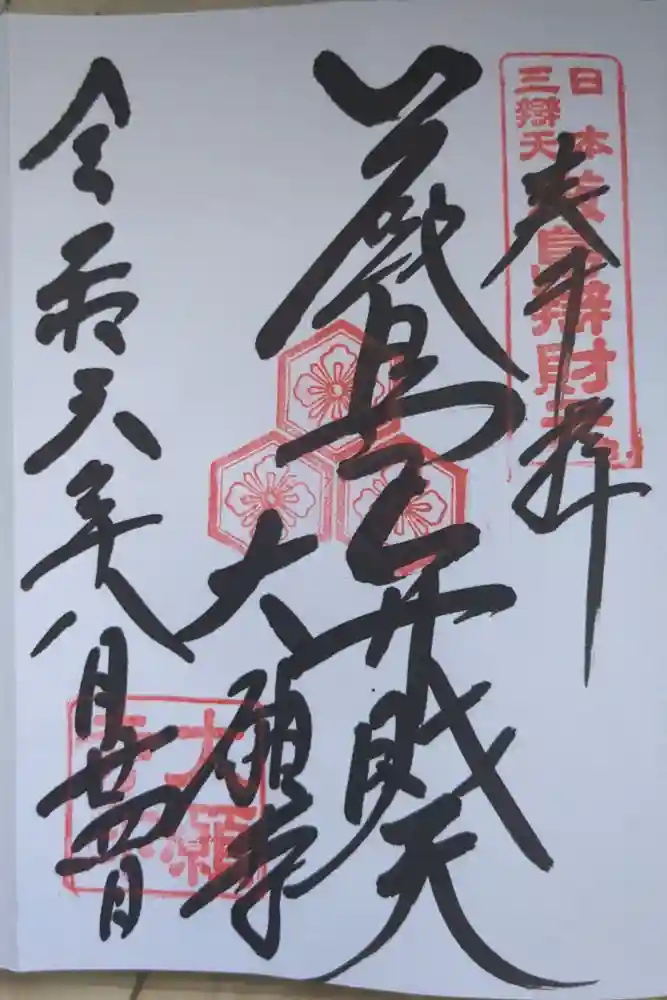 奉拝
日本
三辯天
厳島辯財天
厳島弁財天
大願寺
大願
寺
令和六年八月廿四日